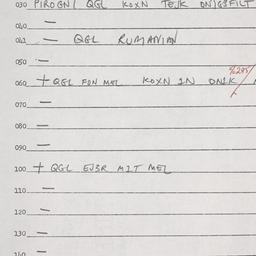 030 PIROGNI QGL KOXN TEJK ON1GSFILT
040 —
041 — QGL RUMANIAN
050 —
060 + QGL FON MEL KOXN IN ONIK
070 —
080 —
090 —
100 + QGL EJ3R MIT MEL
110 —
120 —
130 —